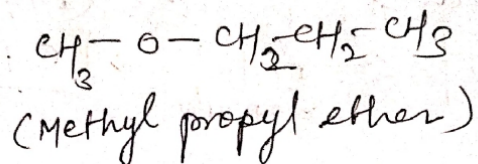 CH₃ — O — CH₂ — CH₂ — CH₃
(Methyl propyl ether)